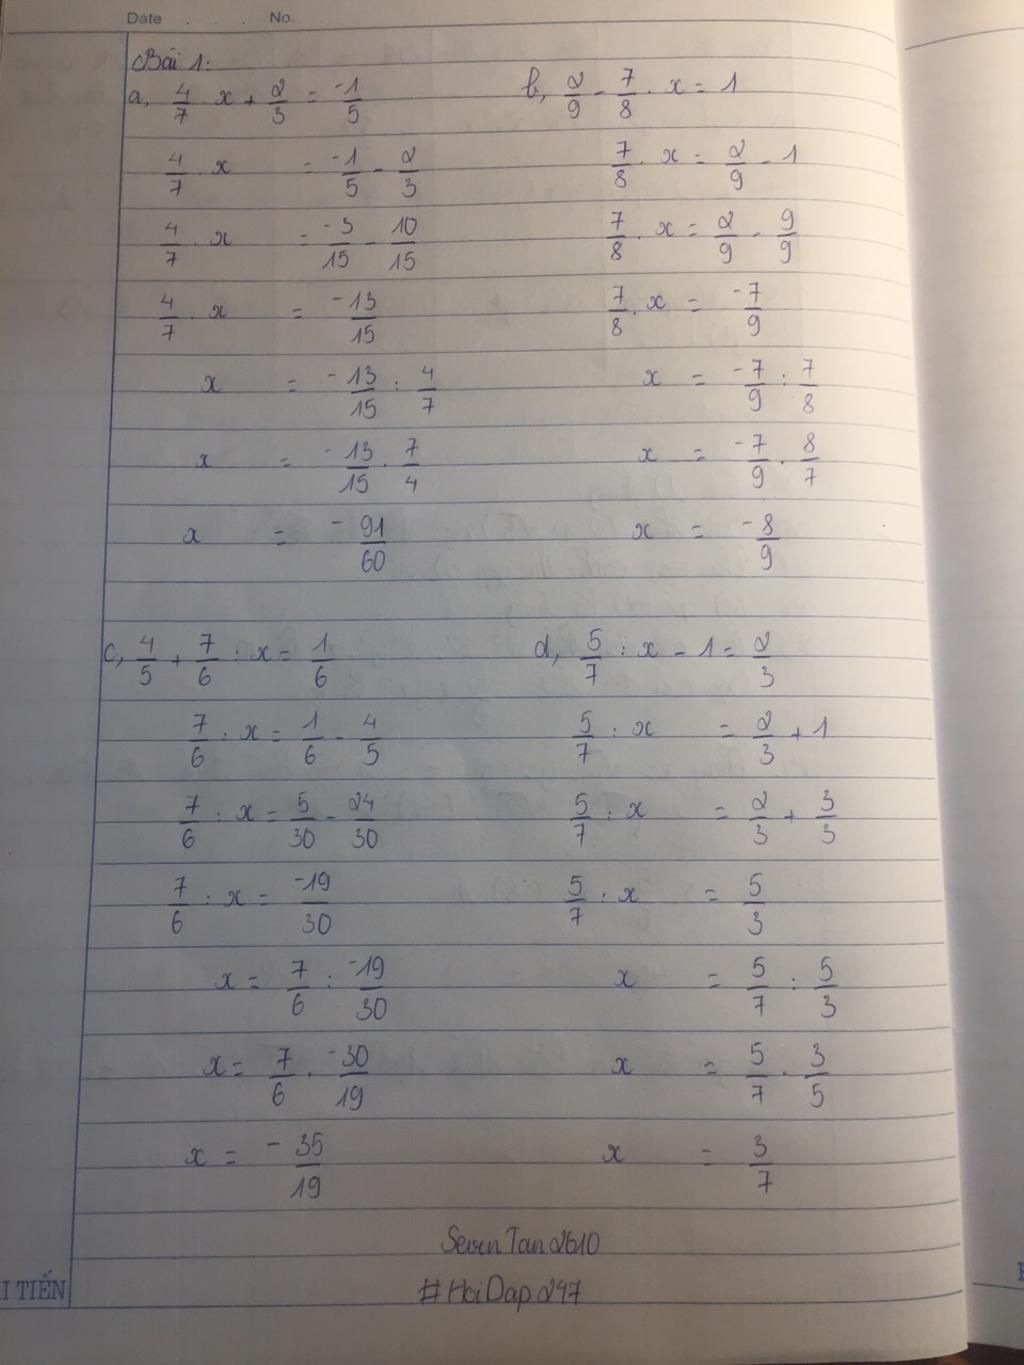 Date . . . No.
Bài 1:
a, 4/7 . x + 2/3 = -1/5
4/7 . x = -1/5 - 2/3
4/7 . x = -3/15 - 10/15
4/7 . x = -13/15
x = -13/15 : 4/7
x = -13/15 . 7/4
x = -91/60
b, 2/9 - 7/8 . x = 1
7/8 . x = 2/9 - 1
7/8 . x = 2/9 - 9/9
7/8 . x = -7/9
x = -7/9 : 7/8
x = -7/9 . 8/7
x = -8/9
c, 4/5 + 7/6 : x = 1/6
7/6 : x = 1/6 - 4/5
7/6 : x = 5/30 - 24/30
7/6 : x = -19/30
x = 7/6 : -19/30
x = 7/6 . -30/19
x = -35/19
d, 5/7 : x - 1 = 2/3
5/7 : x = 2/3 + 1
5/7 : x = 2/3 + 3/3
5/7 : x = 5/3
x = 5/7 : 5/3
x = 5/7 . 3/5
x = 3/7
SevenTan2610
#HoiDap247
I TIẾN